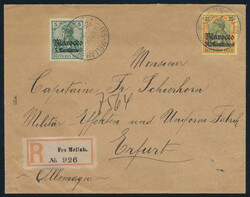 Marocco
5 Centimos
Marocco
Monsieur
Capitaine Fr. Schierhorn
7564
Militär Effekten und Uniform Fabrik
Erfurt
Allemagne
R
Fez Mellah.
№ 926